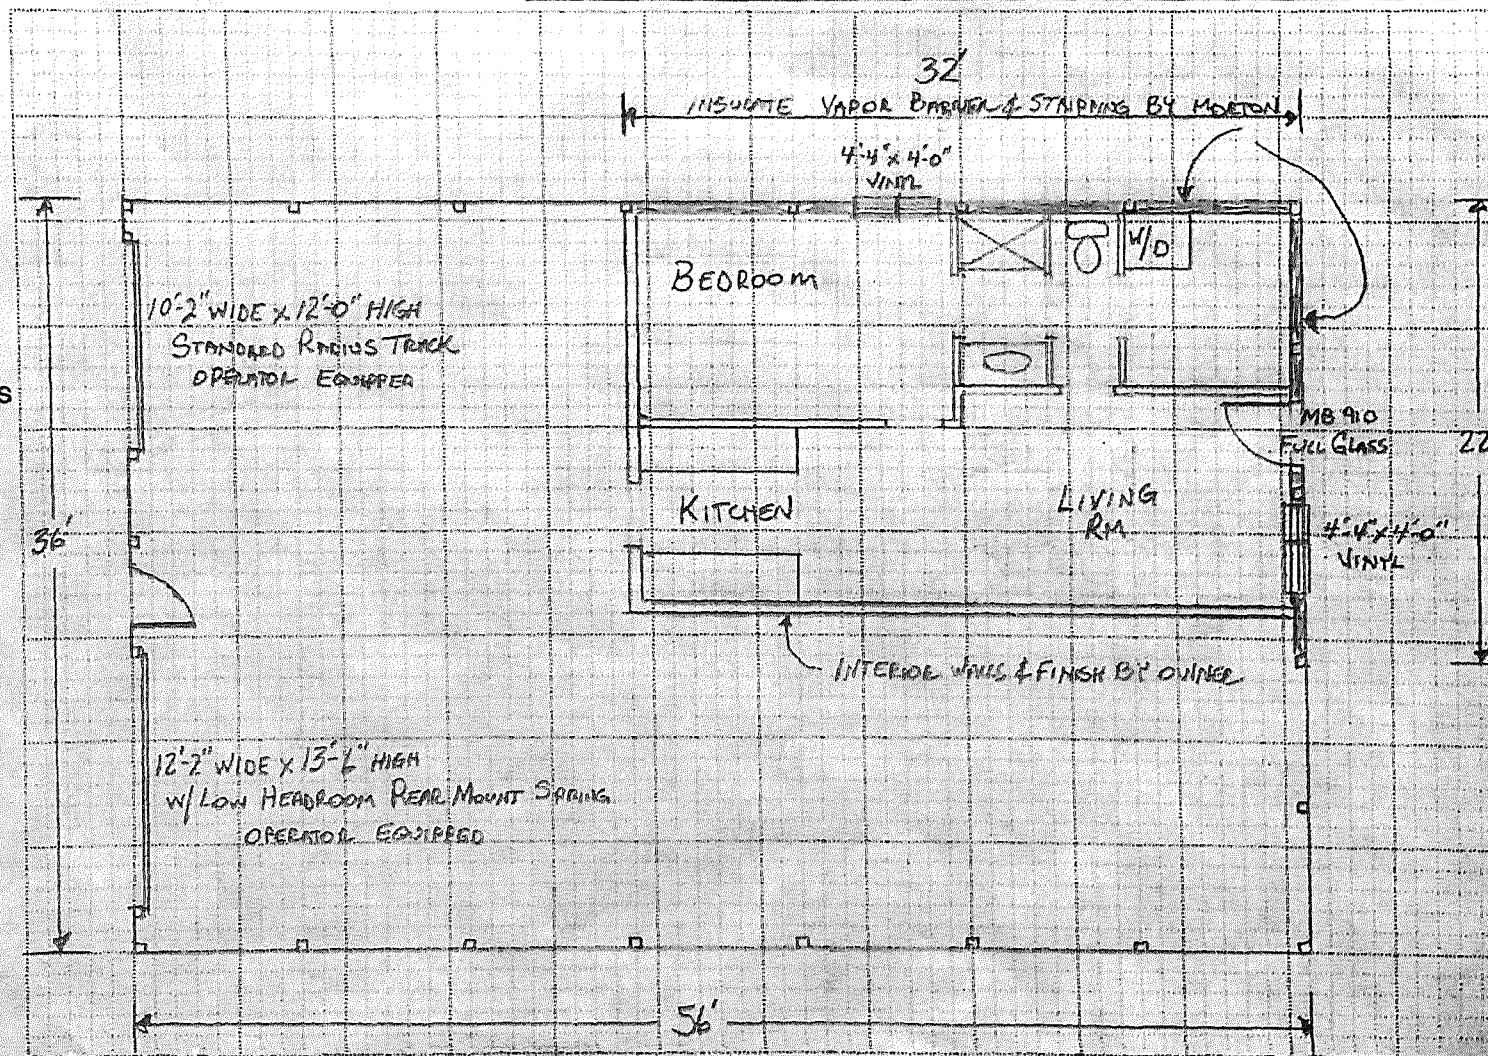 32'
INSULATE VAPOR BARRIER & STRIPPING BY MORTON
4'-4" x 4'-0"
VINYL
W/D
BEDROOM
10'-2" WIDE x 12'-0" HIGH
STANDARD RADIUS TRACK
OPERATOR EQUIPPED
S
MB 910
FULL GLASS
22
36'
KITCHEN
LIVING
RM
4'-4" x 4'-0"
VINYL
INTERIOR WALLS & FINISH BY OWNER
12'-2" WIDE x HIGH
W/ LOW HEADROOM REAR MOUNT SPRING
OPERATOR EQUIPPED
56'